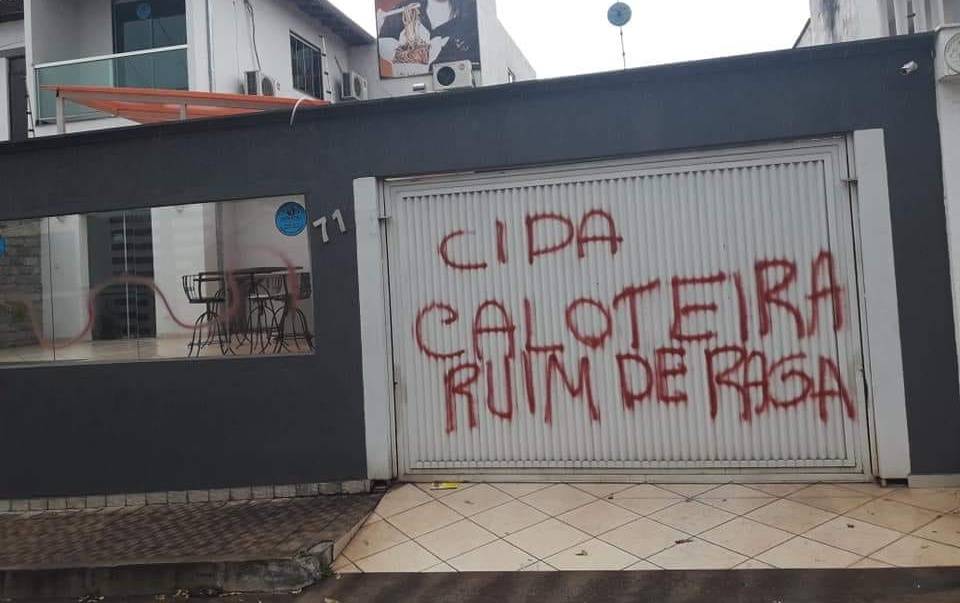 71
CIDA
CALOTEIRA
RUIM DE PAGA